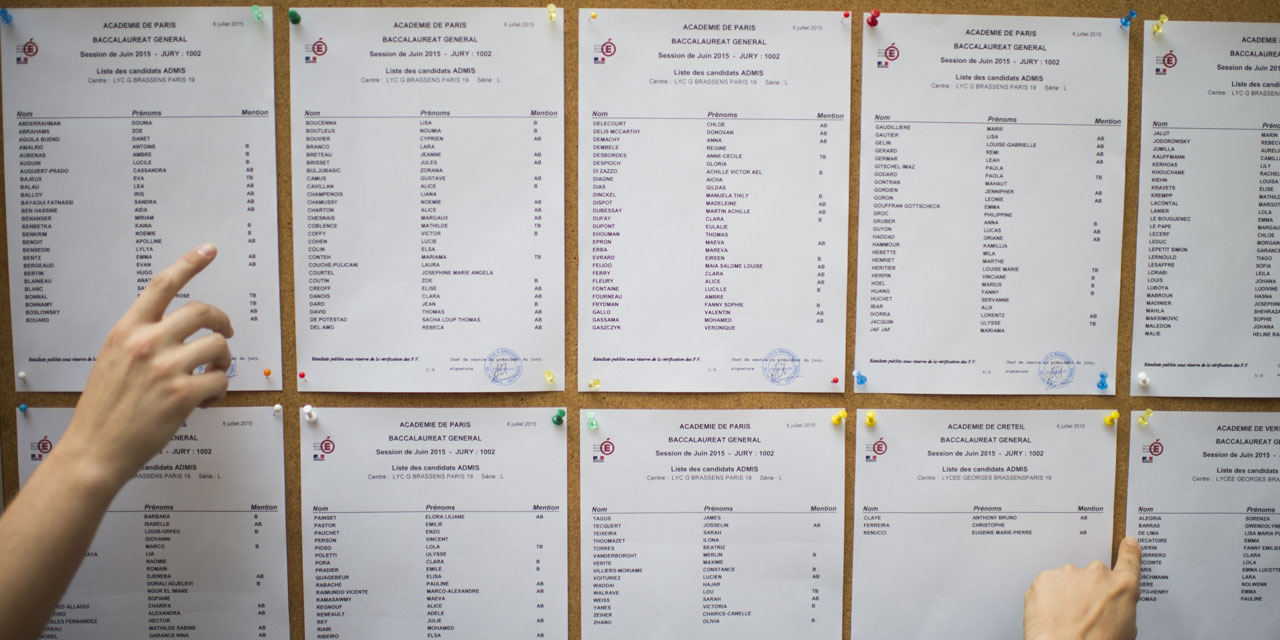 ACADEMIE DE PARIS
6 juillet 2015
BACCALAUREAT GENERAL
Session de Juin 2015 - JURY : 1002
Liste des candidats ADMIS
Centre : LYC G BRASSENS PARIS 19 Série : L
Nom Prénoms Mention
ABDERRAHMAN DOUNIA
ABRAHAMS ZOE
AGUILA BUENO DANET
AMALRIC ANTOINE B
AUBENAS AMBRE B
AUGUIN LUCILE B
AUQUIERT-PRADO CASSANDRA AB
BAJEUX EVA TB
BALAU LEA AB
BALLOY IRIS AB
BAYAOUI FATNASSI SANDRA AB
BEN HASSINE AIDA AB
BENANSER MIRIAM
BENBETKA KAINA B
BENKRIM NOEMIE B
BENOIT APOLLINE AB
BENSEDIK LYLYA
BENTZ EMMA AB
BERGEAUD EVAN AB
BERTIN HUGO
BLAINEAU
BLANC
BONNAL ROSE TB
BONNAMY TB
BOSLOWSKY AB
BOUARD AB
Résultats publiés sous réserve de la vérification des P.V. du jury.
ACADEMIE DE PARIS
6 juillet 2015
BACCALAUREAT GENERAL
Session de Juin 2015 - JURY : 1002
Liste des candidats ADMIS
Centre : LYC G BRASSENS PARIS 19 Série : L
Nom Prénoms Mention
BOUCENNA LISA B
BOUTLEUX NOUMIA B
BOUVIER CYPRIEN AB
BRANCO LARA
BRETEAU JEANNE AB
BRISSET JULES AB
BULJUBASIC ZORANA
CAMUS GUSTAVE AB
CAVILLAN ALICE B
CHAMPENOIS LIANA
CHAMUSSY NOEMIE AB
CHARTON ALICE AB
CHESNAIS MARGAUX AB
COBLENCE MATHILDE TB
COFFY VICTOR B
COHEN LUCIE
COLIN ELSA
CONTEH MARIAMA TB
COUCHE-PULICANI LAURA
COURTEL JOSEPHINE MARIE ANGELA
COUTIN ZOE B
CREOFF ELISE AB
DANOIS CLARA AB
DARD JEAN B
DAVID THOMAS AB
DE POTESTAD SACHA LOUP THOMAS AB
DEL AMO REBECA AB
Résultats publiés sous réserve de la vérification des P.V. Chef de centre du président du jury.
signature
ACADEMIE DE PARIS
6 juillet 2015
BACCALAUREAT GENERAL
Session de Juin 2015 - JURY : 1002
Liste des candidats ADMIS
Centre : LYC G BRASSENS PARIS 19 Série : L
Nom Prénoms Mention
DELECOURT CHLOE AB
DELIS MCCARTHY DONOVAN AB
DEMACHY ANNA AB
DEMBELE REGINE
DESBORDES ANNE-CECILE TB
DESPIOCH GLORIA
DI ZAZZO ACHILLE VICTOR AEL B
DIAGNE AICHA
DIAS GILDAS
DINCKEL MANUELA THILY B
DISPOT MADELEINE AB
DUBESSAY MARTIN ACHILLE AB
DUFAY CLARA B
DUPONT EULALIE
EHOUMAN THOMAS
EPRON MAEVA AB
ERBA MAREVA
EVRARD EIREEN B
FEIJOO MAIA SALOME LOUISE AB
FERRY CLARA AB
FLEURY ALICE AB
FONTAINE LUCILLE B
FOURNEAU AMBRE
FRYDMAN FANNY SOPHIE B
GALLO VALENTIN AB
GASSAMA MOHAMED AB
GASZCZYK VERONIQUE
Résultats publiés sous réserve de la vérification des P.V. Chef de centre du président du jury.
signature
ACADEMIE DE PARIS
6 juillet 2015
BACCALAUREAT GENERAL
Session de Juin 2015 - JURY : 1002
Liste des candidats ADMIS
Centre : LYC G BRASSENS PARIS 19 Série : L
Nom Prénoms Mention
GAUDILLIERE MARIE
GAUTIER LISA AB
GELIN LOUISE-GABRIELLE AB
GERARD REMI AB
GERMAR LEAH AB
GITSCHEL IMAZ PAULA
GODARD PAOLA TB
GONTRAN MAHAUT
GORDIEN JENNIPHER AB
GORON LEONIE AB
GOUFFRAN GOTTSCHECK EMMA
GROC PHILIPPINE
GRUBER ANNA B
GUYON LUCAS AB
HADDAD ORIANE AB
HAMMOUR KAMILLIA
HEBETTE MILA
HENRIET MARTHE
HERITIER LOUISE MARIE TB
HERPIN VINCIANE B
HOEL MARIUS B
HUANG FANNY B
HUCHET SERVANNE
IBAR ALIX
IVORRA LORENTZ AB
JACQUIN ULYSSE TB
JAF JAF MARIAMA
Résultats publiés sous réserve de la vérification des P.V. Chef de centre du président du jury.
signature
ACADEMIE
BACCALAUREA
Session de Juin 20
Liste des ca
Centre : LYC G BRASS
Nom Prénoms
JALUT MARIN
JODOROWSKY REBEC
JUMILLA AURELI
KAUFFMANN CAMILL
KERHOAS LILY
KHOUCHANE RACHEL
KIEHN LOUISA
KRAVETS ELISE
KREMPP MATHILD
LACONTAL MARGO
LANIER LOLA
LE BOUGUENEC EMMA
LE PAPE MARGAU
LECERF CHLOE
LEDUC MORGAN
LEPETIT SIMON GARANC
LERNOULD TIAGO
LESAFFRE SOFIA
LORABI LEILA
LOUIS JOHANA
LUBOYA LUDIVINE
MABROUK HASNA
MADINIER JOSEPHIN
MAHLA SHEHRAZA
MAKSIMOVIC SOPHIE
MALEDON JOHANA
MALIE HELINE RA
Résultats publiés sous réserve de la vérification des P.V.
DE PARIS
6 juillet 2015
GENERAL
- JURY : 1002
ADMIS
BRASSENS PARIS 19 Série : L
Prénoms Mention
BARBARA B
ISABELLE AB
LOUIS-ORFEO B
GIOVANNI
MARCO B
LIA
NAOMIE
ROMAIN
DJENEBA AB
DORALI ADJELEVI B
NOUR EL IMANE
SOFIANE
CHARIFA AB
ALEXANDRA AB
HECTOR
MATHILDE SABINE AB
GARANCE NINA AB
ACADEMIE DE PARIS
6 juillet 2015
BACCALAUREAT GENERAL
Session de Juin 2015 - JURY : 1002
Liste des candidats ADMIS
Centre : LYC G BRASSENS PARIS 19 Série : L
Nom Prénoms Mention
PAINSET ELORA LILIANE AB
PASTOR EMILIE
PAUCHET ENZO
PERSON VINCENT
PIOSO LOLA TB
POLETTI ULYSSE
PORA CLARA B
PRADIER EMILE B
QUAGEBEUR ELISA
RABACHE PAULINE AB
RAIMUNDO VICENTE MARCO-ALEXANDRE AB
RAMASAWMY MAEVA
REGNOUF ALICE AB
RENEAULT ADELE
REY JULIE AB
RIABI MOHAMED
RIBEIRO ELSA AB
ACADEMIE DE PARIS
6 juillet 2015
BACCALAUREAT GENERAL
Session de Juin 2015 - JURY : 1002
Liste des candidats ADMIS
Centre : LYC G BRASSENS PARIS 19 Série : L
Nom Prénoms Mention
TAGUS JAMES
TECQUERT JOSSELIN AB
TEIXEIRA SARAH
THOUMAZET ILONA
TORRES BEATRIZ
VANDERBORGHT MERLIN B
VERITE MAXIME
VILLIERS-MORIAME CONSTANCE B
VOITURIEZ LUCIEN AB
WADDAI HAJAR
WALRAVE LOU TB
WEISS SARAH AB
YANES VICTORIA B
ZEIHER CHARICE-CANELLE
ZHANG OLIVIA B
ACADEMIE DE CRETEIL
6 juillet 2015
BACCALAUREAT GENERAL
Session de Juin 2015 - JURY : 1002
Liste des candidats ADMIS
Centre : LYCEE GEORGES BRASSENSPARIS 19
Nom Prénoms Mention
CLAYE ANTHONY BRUNO AB
FERREIRA CHRISTOPHE
RENUCCI EUGENIE MARIE-PIERRE AB
ACADEMIE DE VERS
BACCALAUREAT G
Session de Juin 2015
Liste des candida
Centre : LYCEE GEORGES BRAS
Nom Prénoms
ALEGRIA SORENZA
BARRAS GWENDOLYN
DE LIMA LISA MARIA P
DECATOIRE EMMA
FANNY EMILIE
CLARA
LOLA
EMMA LUCETTE
CLARA
NOLWENN
EMMA
PAULINE